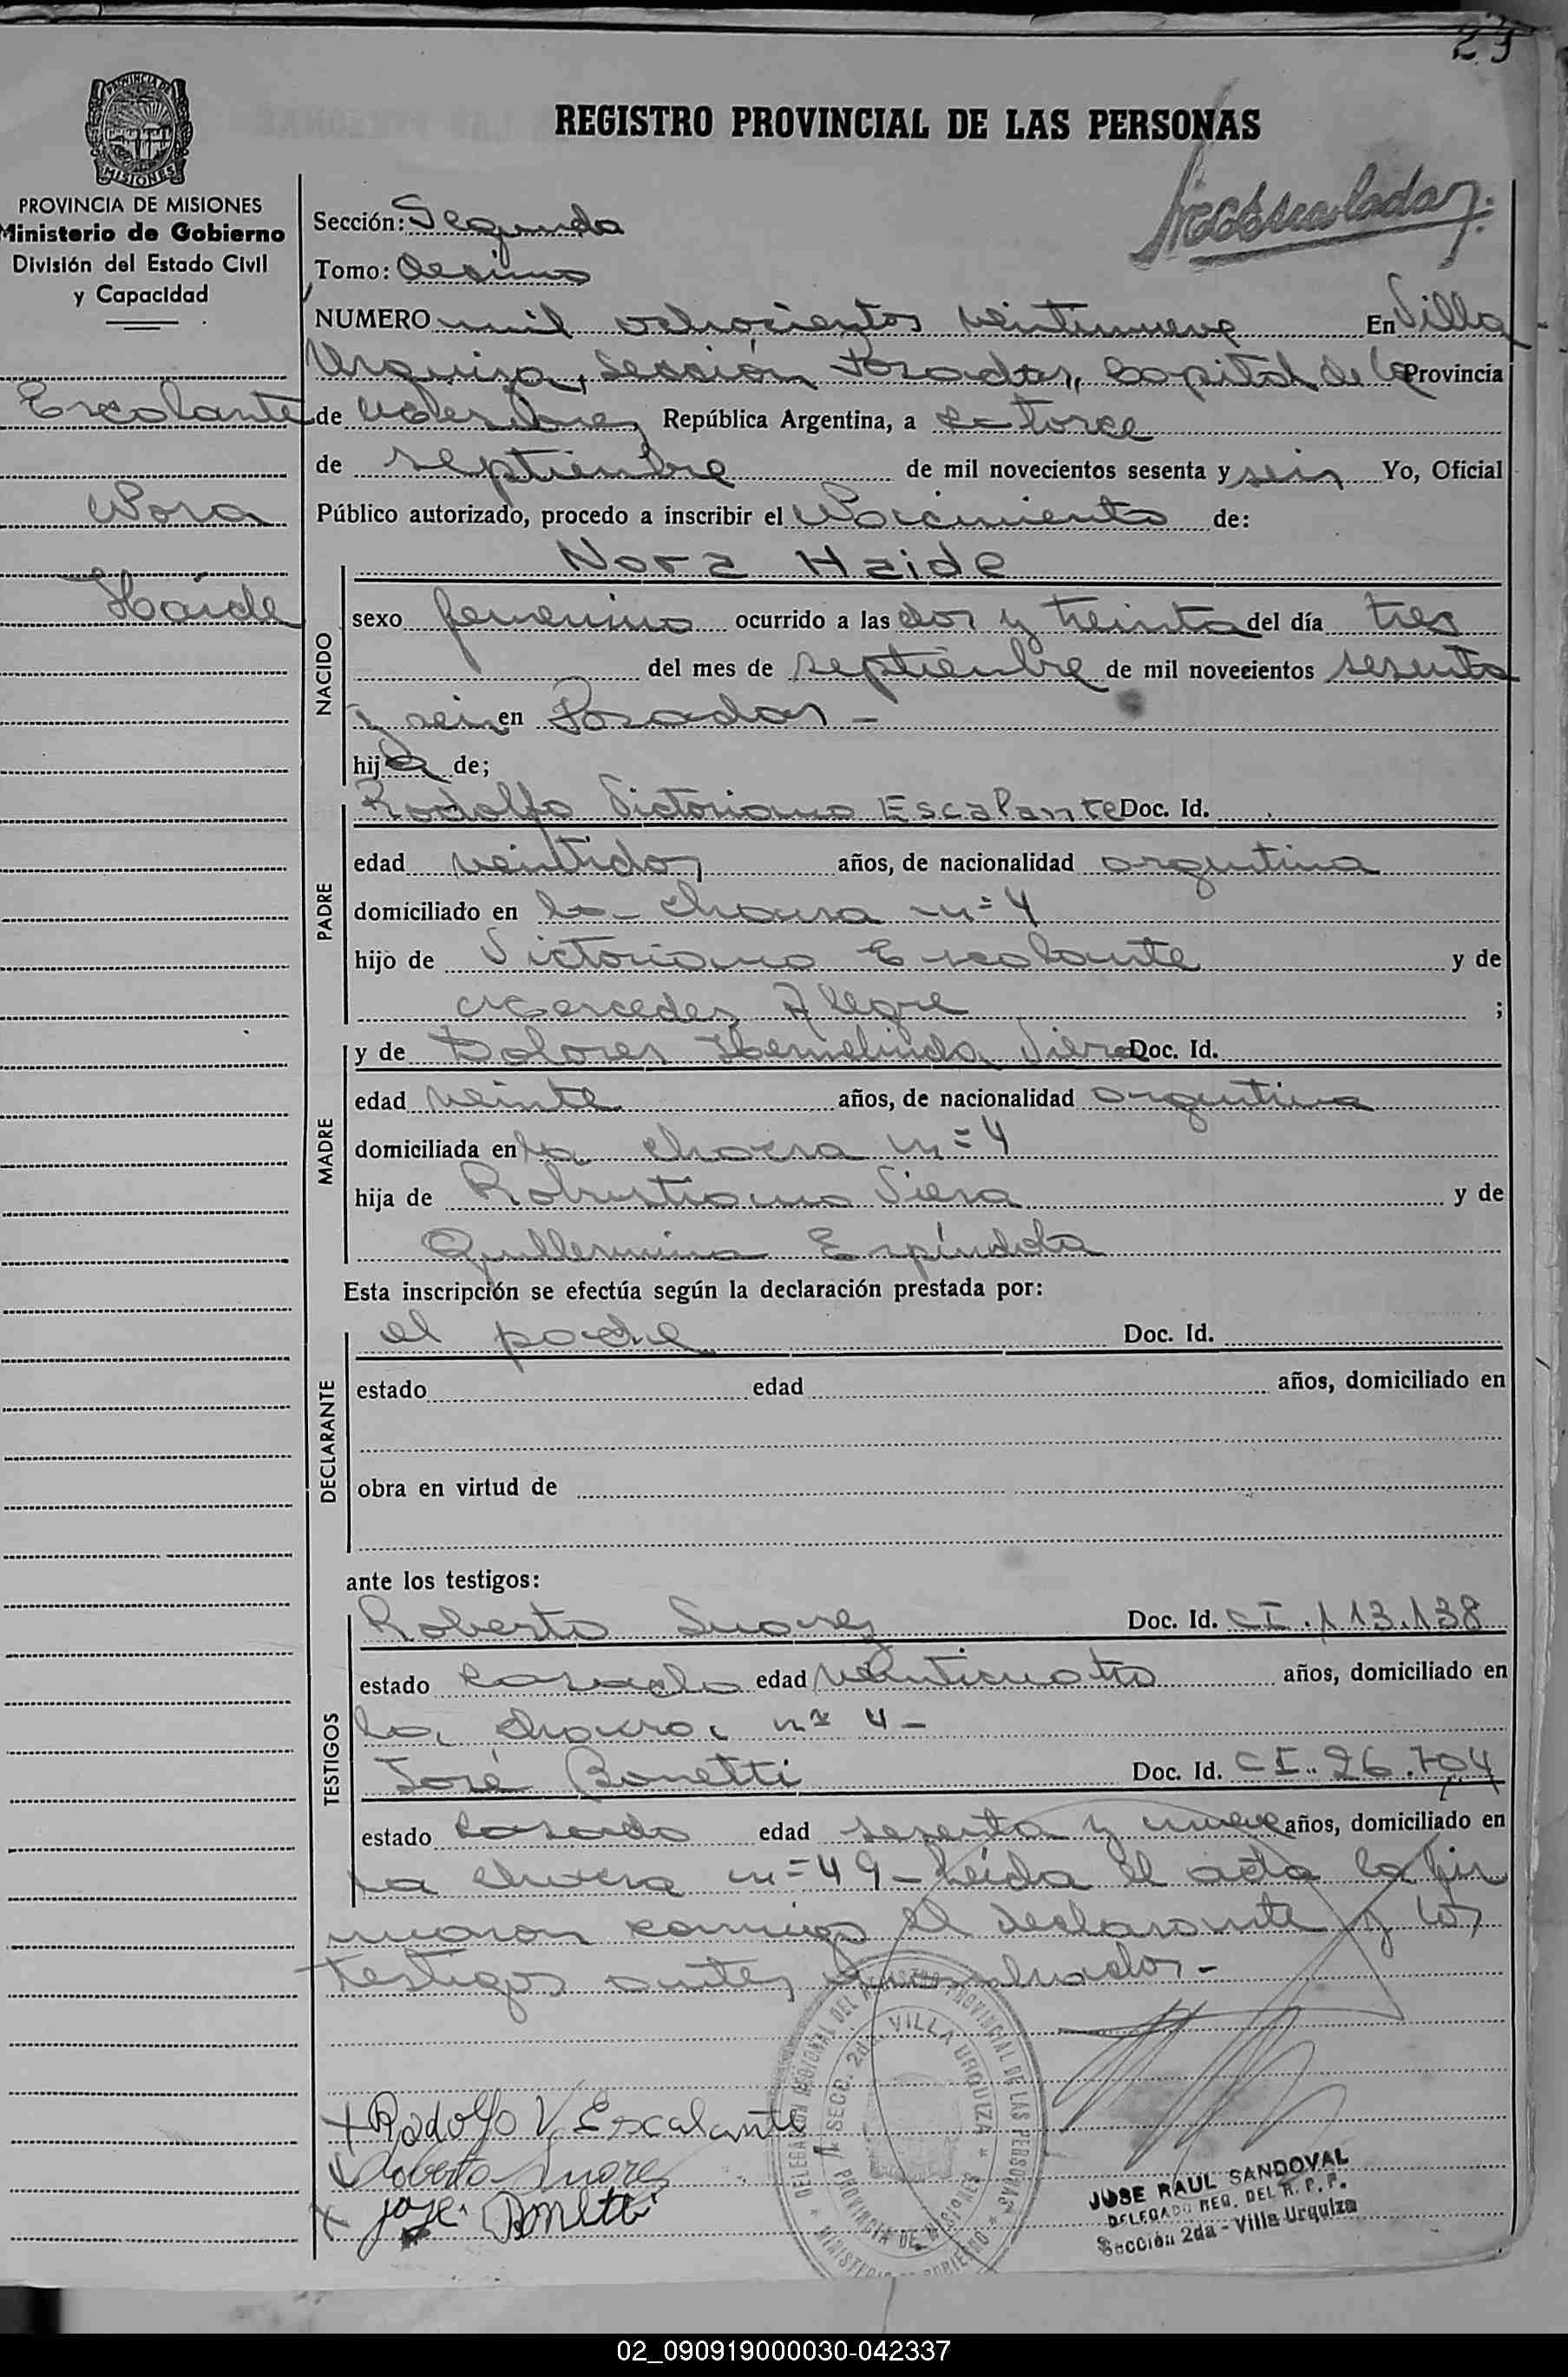 23
REGISTRO PROVINCIAL DE LAS PERSONAS
PROVINCIA DE MISIONES
Ministerio de Gobierno
División del Estado Civil
y Capacidad
Escalante
Nora
Haide
Sección: Segunda
Tomo: Decimo
NUMERO mil ochocientos veintinueve En Villa
Urquiza, Sección Posadas, Capital de la Provincia
de Misiones, República Argentina, a catorce
de septiembre de mil novecientos sesenta y seis Yo, Oficial
Público autorizado, procedo a inscribir el Nacimiento de:
Nora Haide
NACIDO
sexo femenino ocurrido a las dos y treinta del día tres
del mes de septiembre de mil novecientos sesenta
y seis en Posadas -
hija de;
PADRE
Rodolfo Victoriano Escalante Doc. Id.
edad veintidos años, de nacionalidad argentina
domiciliado en la chacra n= 4
hijo de Victoriano Escalante y de
Mercedes Alegre ;
MADRE
y de Dolores Hermelinda Viera Doc. Id.
edad veinte años, de nacionalidad argentina
domiciliada en la chacra n= 4
hija de Robustiano Viera y de
Guillermina Espíndola
Esta inscripción se efectúa según la declaración prestada por:
DECLARANTE
el padre Doc. Id.
estado edad años, domiciliado en
obra en virtud de
ante los testigos:
TESTIGOS
Roberto Suarez Doc. Id. CI. 113.138
estado casado edad veinticuatro años, domiciliado en
la chacra nº 4 -
José Bonetti Doc. Id. CI. 26.704
estado casado edad sesenta y nueve años, domiciliado en
la chacra n= 49 - Leida el acta la fir
maron conmigo el declarante y los
testigos antes nombrados. -
Rodolfo V. Escalante
Roberto Suarez
José Bonetti
DELEGACION REGIONAL DEL REGISTRO PROVINCIAL DE LAS PERSONAS
SECC. 2da. VILLA URQUIZA
PROVINCIA DE MISIONES
MINISTERIO DE GOBIERNO
JOSE RAUL SANDOVAL
DELEGADO REG. DEL R. P. P.
Sección 2da - Villa Urquiza
02_090919000030-042337